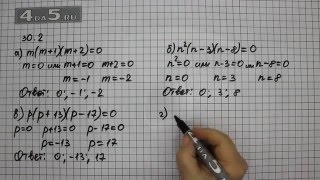 4DA5.RU
30.2
а) m(m+1)(m+2)=0
m=0 или m+1=0 m+2=0
m=-1 m=-2
Ответ: 0; -1; -2
б) n²(n-3)(n-8)=0
n²=0 или n-3=0 или n-8=0
n=0 n=3 n=8
Ответ: 0; 3; 8
в) p(p+13)(p-17)=0
p=0 p+13=0 p-17=0
p=-13 p=17
Ответ: 0; -13; 17
г)